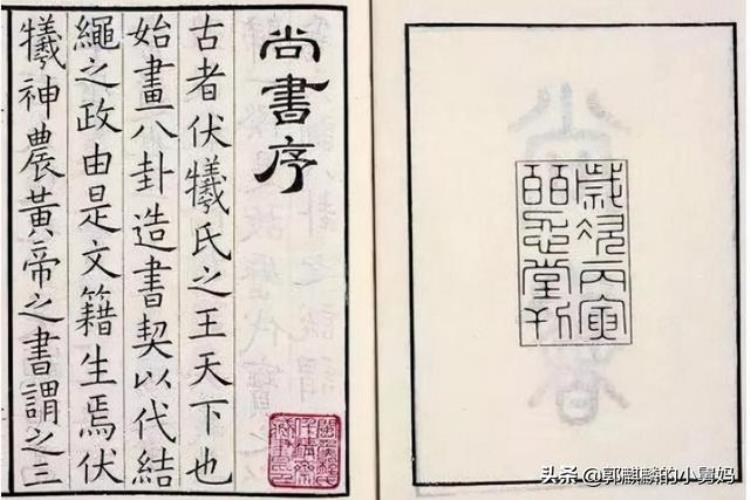 歲次丙寅
皕忍堂刊
尚書序
古者伏犧氏之王天下也
始畫八卦造書契以代結
繩之政由是文籍生焉伏
犧神農黃帝之書謂之三
头条 @郭麒麟的小舅妈